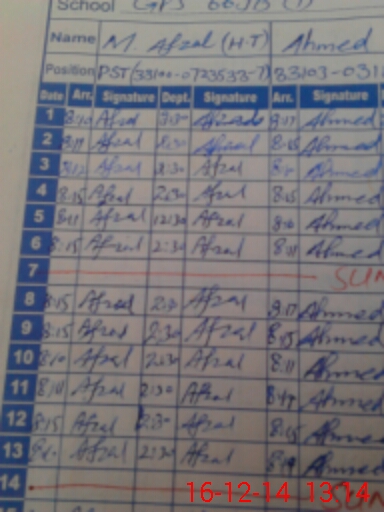 School GPS
Name M. Afzal (H.T) Ahmed
Position PST(33100-0723533-7) 33103-031
Date Arr. Signature Dept. Signature Arr. Signature
1 Afzal Afzal 8:17 Ahmed
2 8:11 Afzal 2:30 Afzal 8:15 Ahmed
3 8:12 Afzal 2:30 Afzal Ahmed
4 8:15 Afzal 2:30 Afzal 8:15 Ahmed
5 8:11 Afzal 12:30 Afzal 8:10 Ahmed
6 8:15 Afzal 2:30 Afzal 8:11 Ahmed
7 SUN
8 8:15 Afzal 2:30 Afzal 8:17 Ahmed
9 8:15 Afzal 2:30 Afzal 8:15 Ahmed
10 8:10 Afzal 2:30 Afzal 8:11 Ahmed
11 8:10 Afzal 2:30 Afzal Ahmed
12 8:15 Afzal 2:30 Afzal 8:15 Ahmed
13 Afzal 2:30 Afzal 8:19 Ahmed
14 SUN
16-12-14 13:14